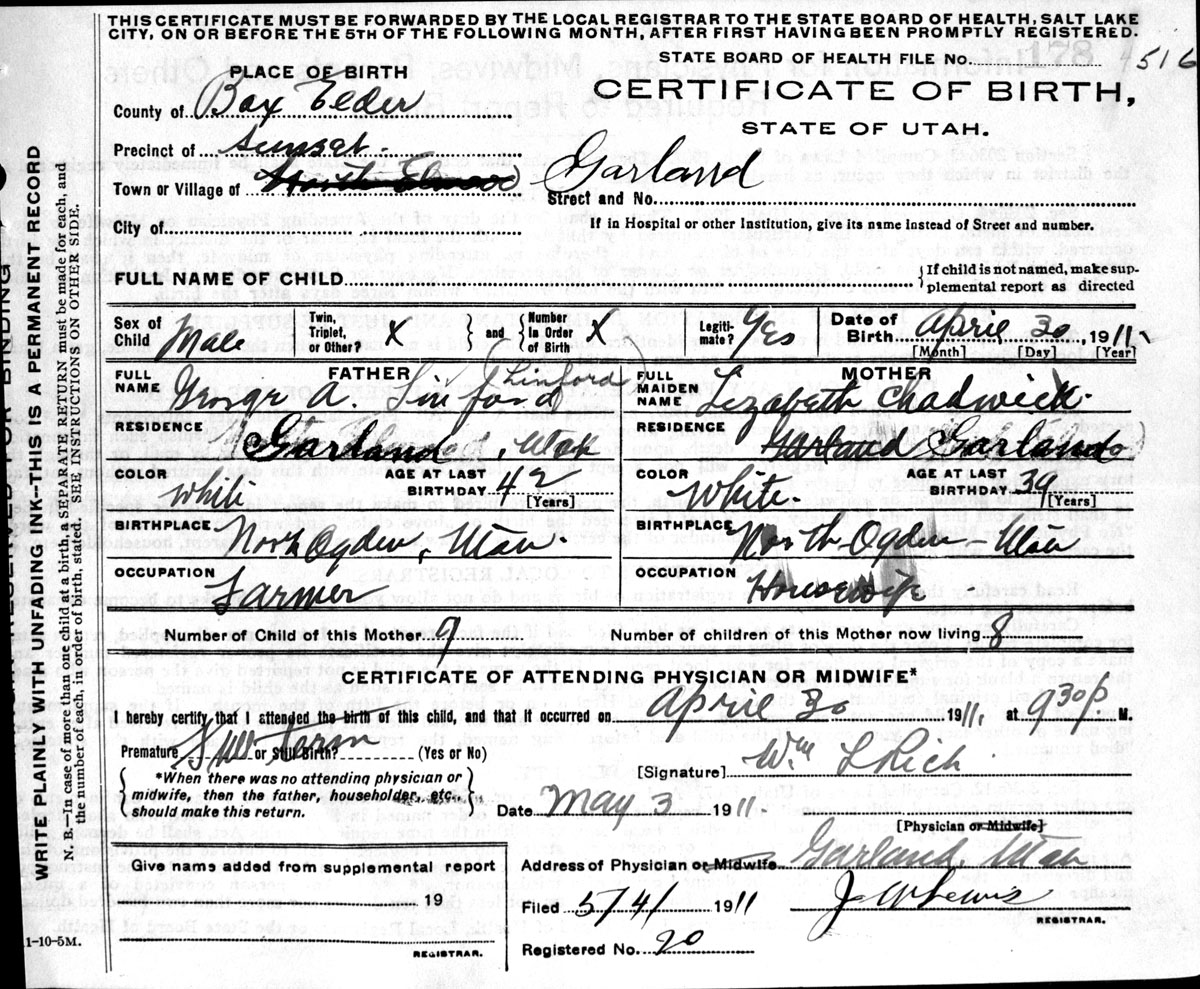 THIS CERTIFICATE MUST BE FORWARDED BY THE LOCAL REGISTRAR TO THE STATE BOARD OF HEALTH, SALT LAKE
CITY, ON OR BEFORE THE 5TH OF THE FOLLOWING MONTH, AFTER FIRST HAVING BEEN PROMPTLY REGISTERED.
STATE BOARD OF HEALTH FILE No. 178 516
PLACE OF BIRTH
CERTIFICATE OF BIRTH,
STATE OF UTAH.
County of Box Elder
Precinct of Sunset.
Town or Village of Garland
Street and No.
City of
If in Hospital or other Institution, give its name instead of Street and number.
FULL NAME OF CHILD
{If child is not named, make sup-
plemental report as directed
Sex of Child Male
Twin, Triplet, or Other? X } and { Number In Order of Birth X
Legiti-mate? Yes
Date of Birth April 30, 1911
[Month] [Day] [Year]
FATHER
FULL NAME George A. Linford (Linford)
RESIDENCE Garland, Utah
COLOR White
AGE AT LAST BIRTHDAY 42 [Years]
BIRTHPLACE North Ogden, Utah.
OCCUPATION Farmer
MOTHER
FULL MAIDEN NAME Lizabeth Chadwick.
RESIDENCE Garland (Garland)
COLOR White.
AGE AT LAST BIRTHDAY 39 [Years]
BIRTHPLACE North Ogden – Utah
OCCUPATION Housewife
Number of Child of this Mother 9
Number of children of this Mother now living 8
CERTIFICATE OF ATTENDING PHYSICIAN OR MIDWIFE*
I hereby certify that I attended the birth of this child, and that it occurred on April 30 1911, at 930 P M.
Premature or Still Birth? Full term (Yes or No)
{ *When there was no attending physician or
midwife, then the father, householder, etc.,
should make this return. }
[Signature] Wm L Rich.
Date May 3 1911
[Physician or Midwife]
Give name added from supplemental report
19
REGISTRAR.
Address of Physician or Midwife Garland, Utah
Filed 5/4/ 1911
J W Lewis
REGISTRAR.
Registered No. 20
1-10-5M.
WRITE PLAINLY WITH UNFADING INK--THIS IS A PERMANENT RECORD
N. B.--In case of more than one child at a birth, a SEPARATE RETURN must be made for each, and
the number of each, in order of birth, stated. SEE INSTRUCTIONS ON OTHER SIDE.